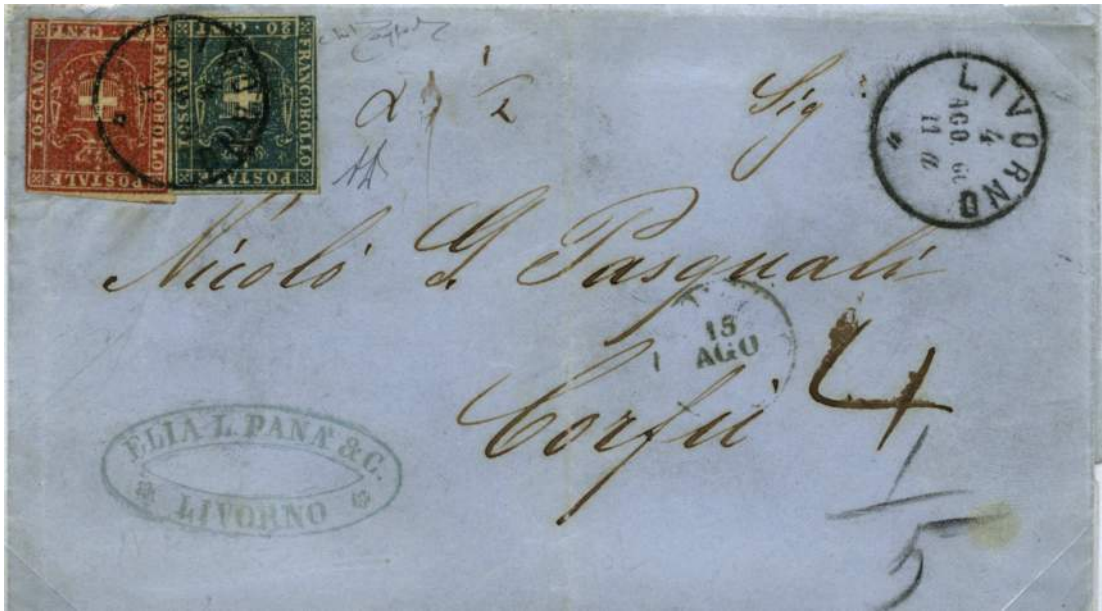 FRANCOBOLLO
POSTALE
TOSCANO
20 CENT
FRANCOBOLLO
POSTALE
TOSCANO
LIVORNO
4
AGO. 60
11
Sig
Nicoló G Pasquali
15
AGO
Corfú
4
1/5
ELIA L. PANA & C.
LIVORNO